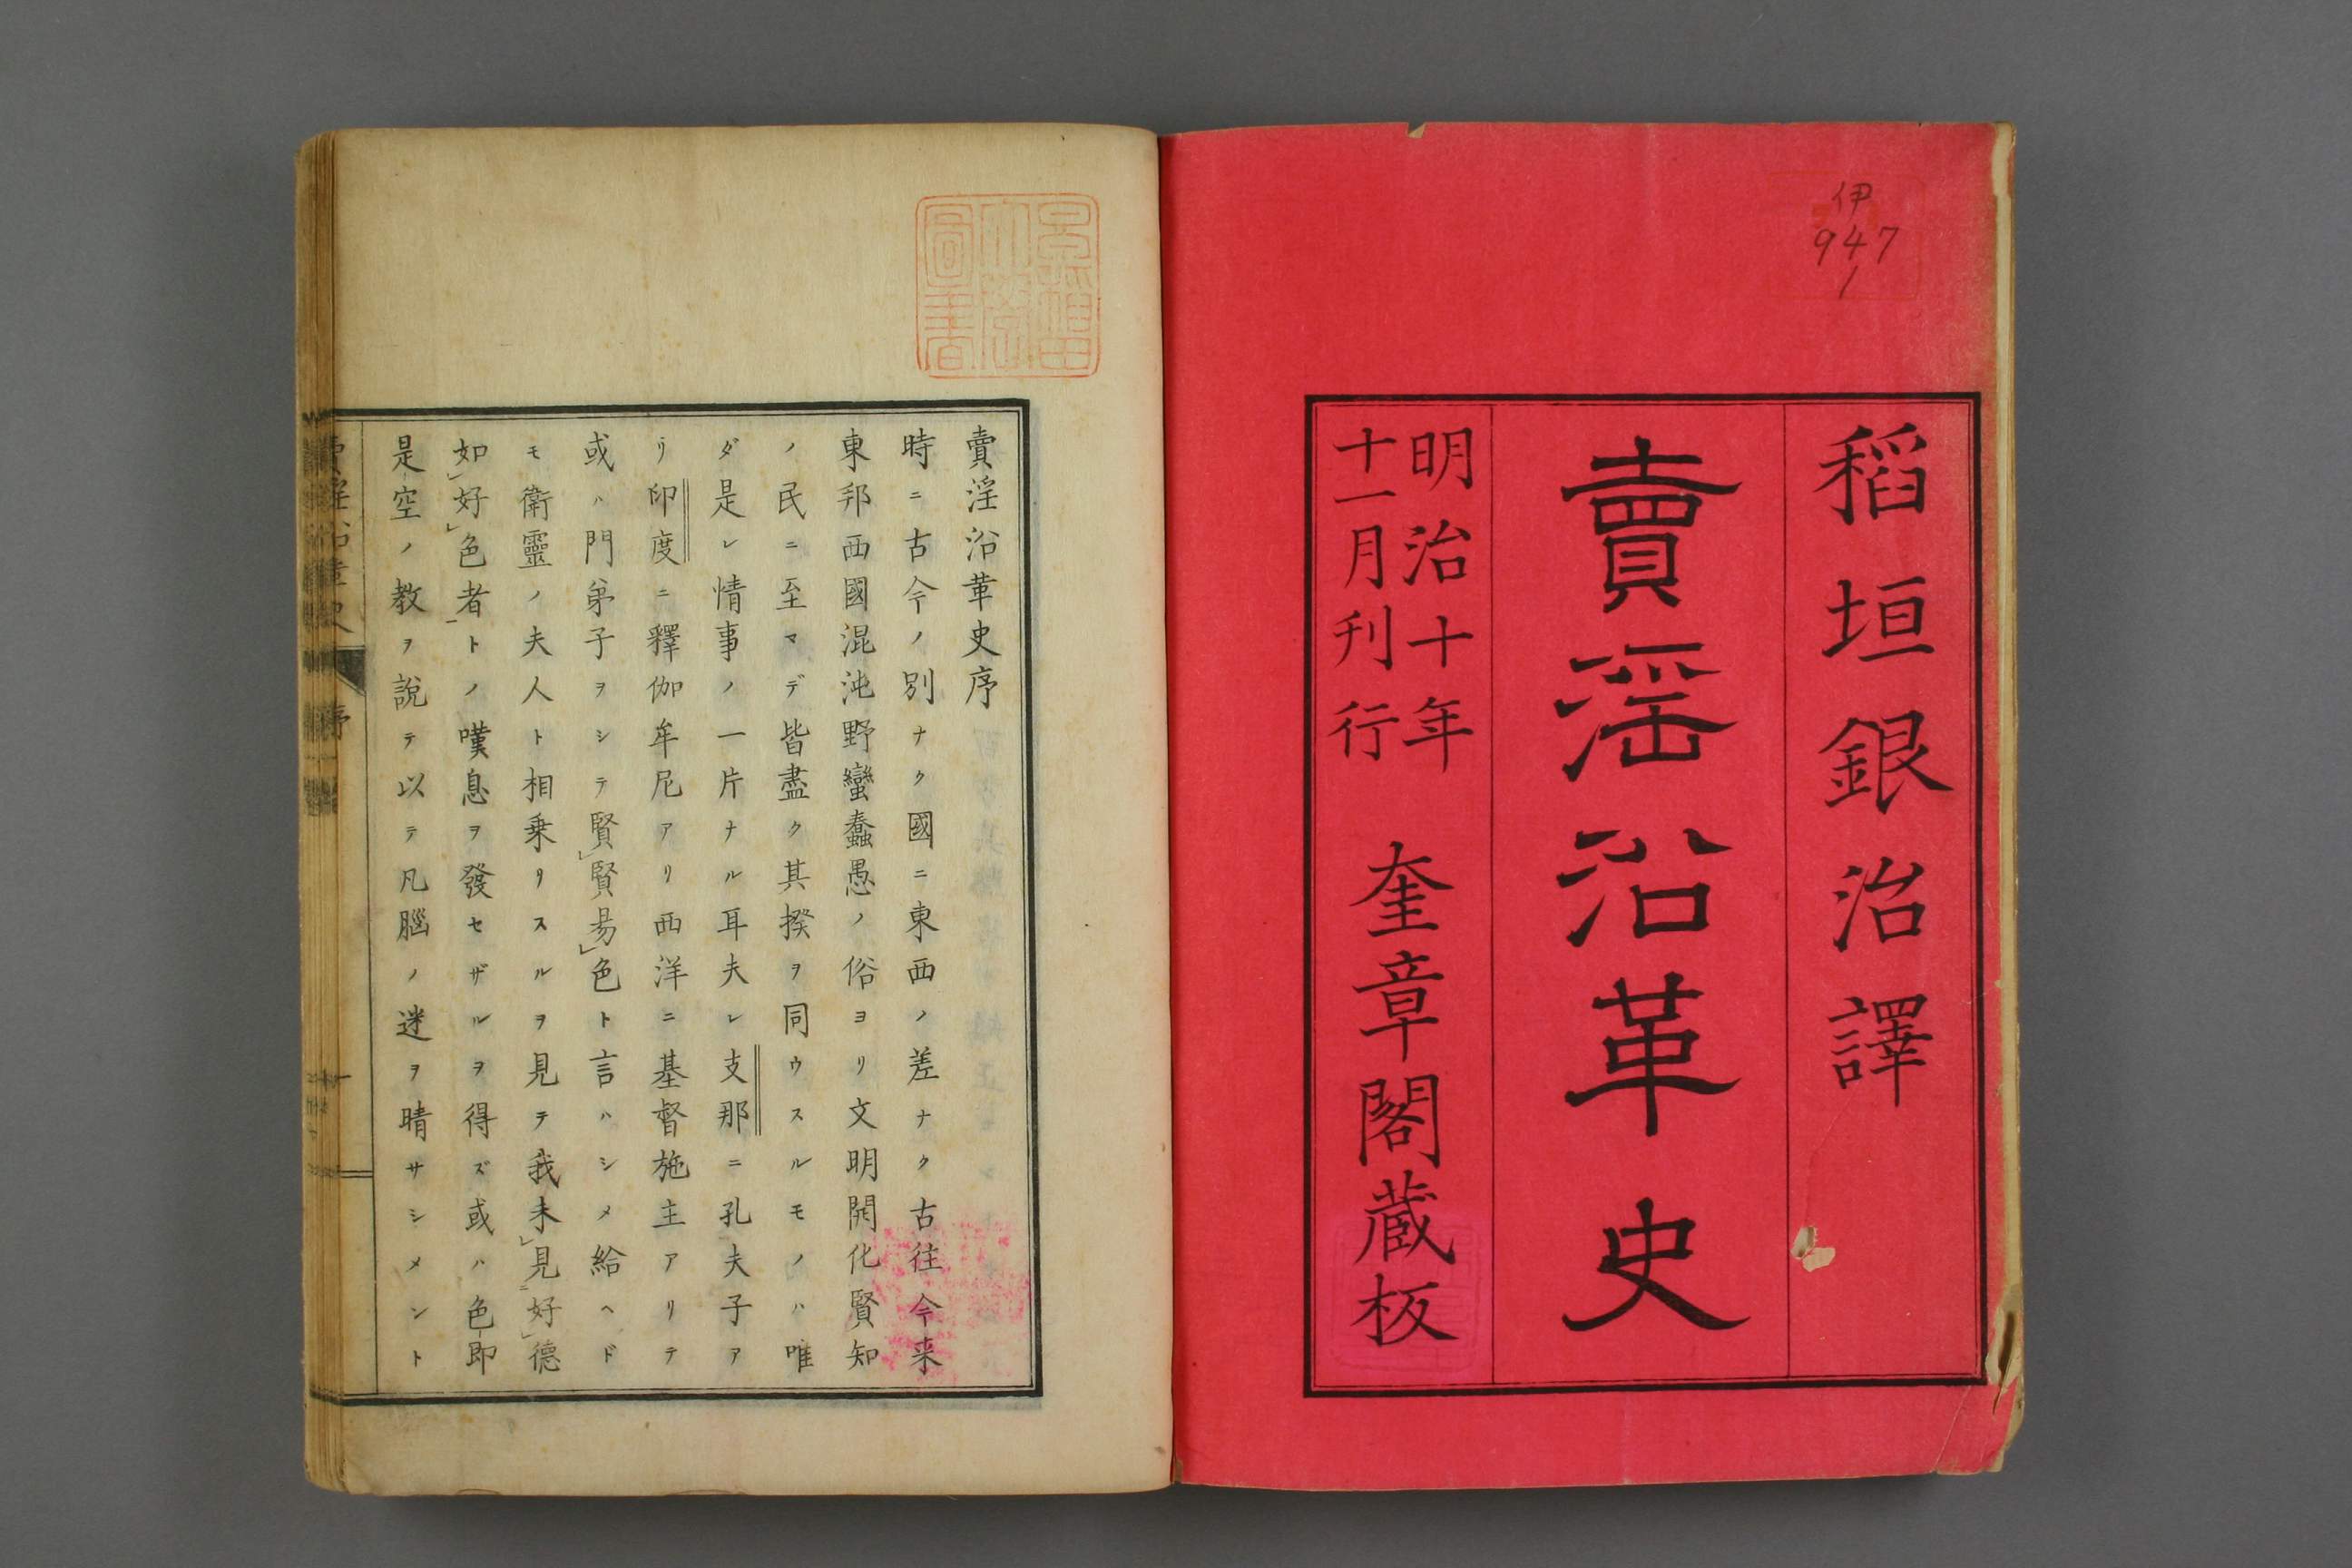 伊
947
1
稻垣銀治譯
賣淫沿革史
明治十年
十一月刊行
奎章閣藏板
賣淫沿革史序
時ニ古今ノ別ナク國ニ東西ノ差ナク古往今来
東邦西國混沌野蠻蠢愚ノ俗ヨリ文明開化賢知
ノ民ニ至マデ皆盡ク其揆ヲ同ウスルモノハ唯
ダ是レ情事ノ一片ナル耳夫レ支那ニ孔夫子ア
リ印度ニ釋伽牟尼アリ西洋ニ基督施主アリテ
或ハ門弟子ヲシテ賢賢易色ト言ハシメ給ヘド
モ衛靈ノ夫人ト相乗リスルヲ見テ我未見好德
如好色者トノ嘆息ヲ發セザルヲ得ズ或ハ色即
是空ノ教ヲ說テ以テ凡腦ノ迷ヲ晴サシメント
序